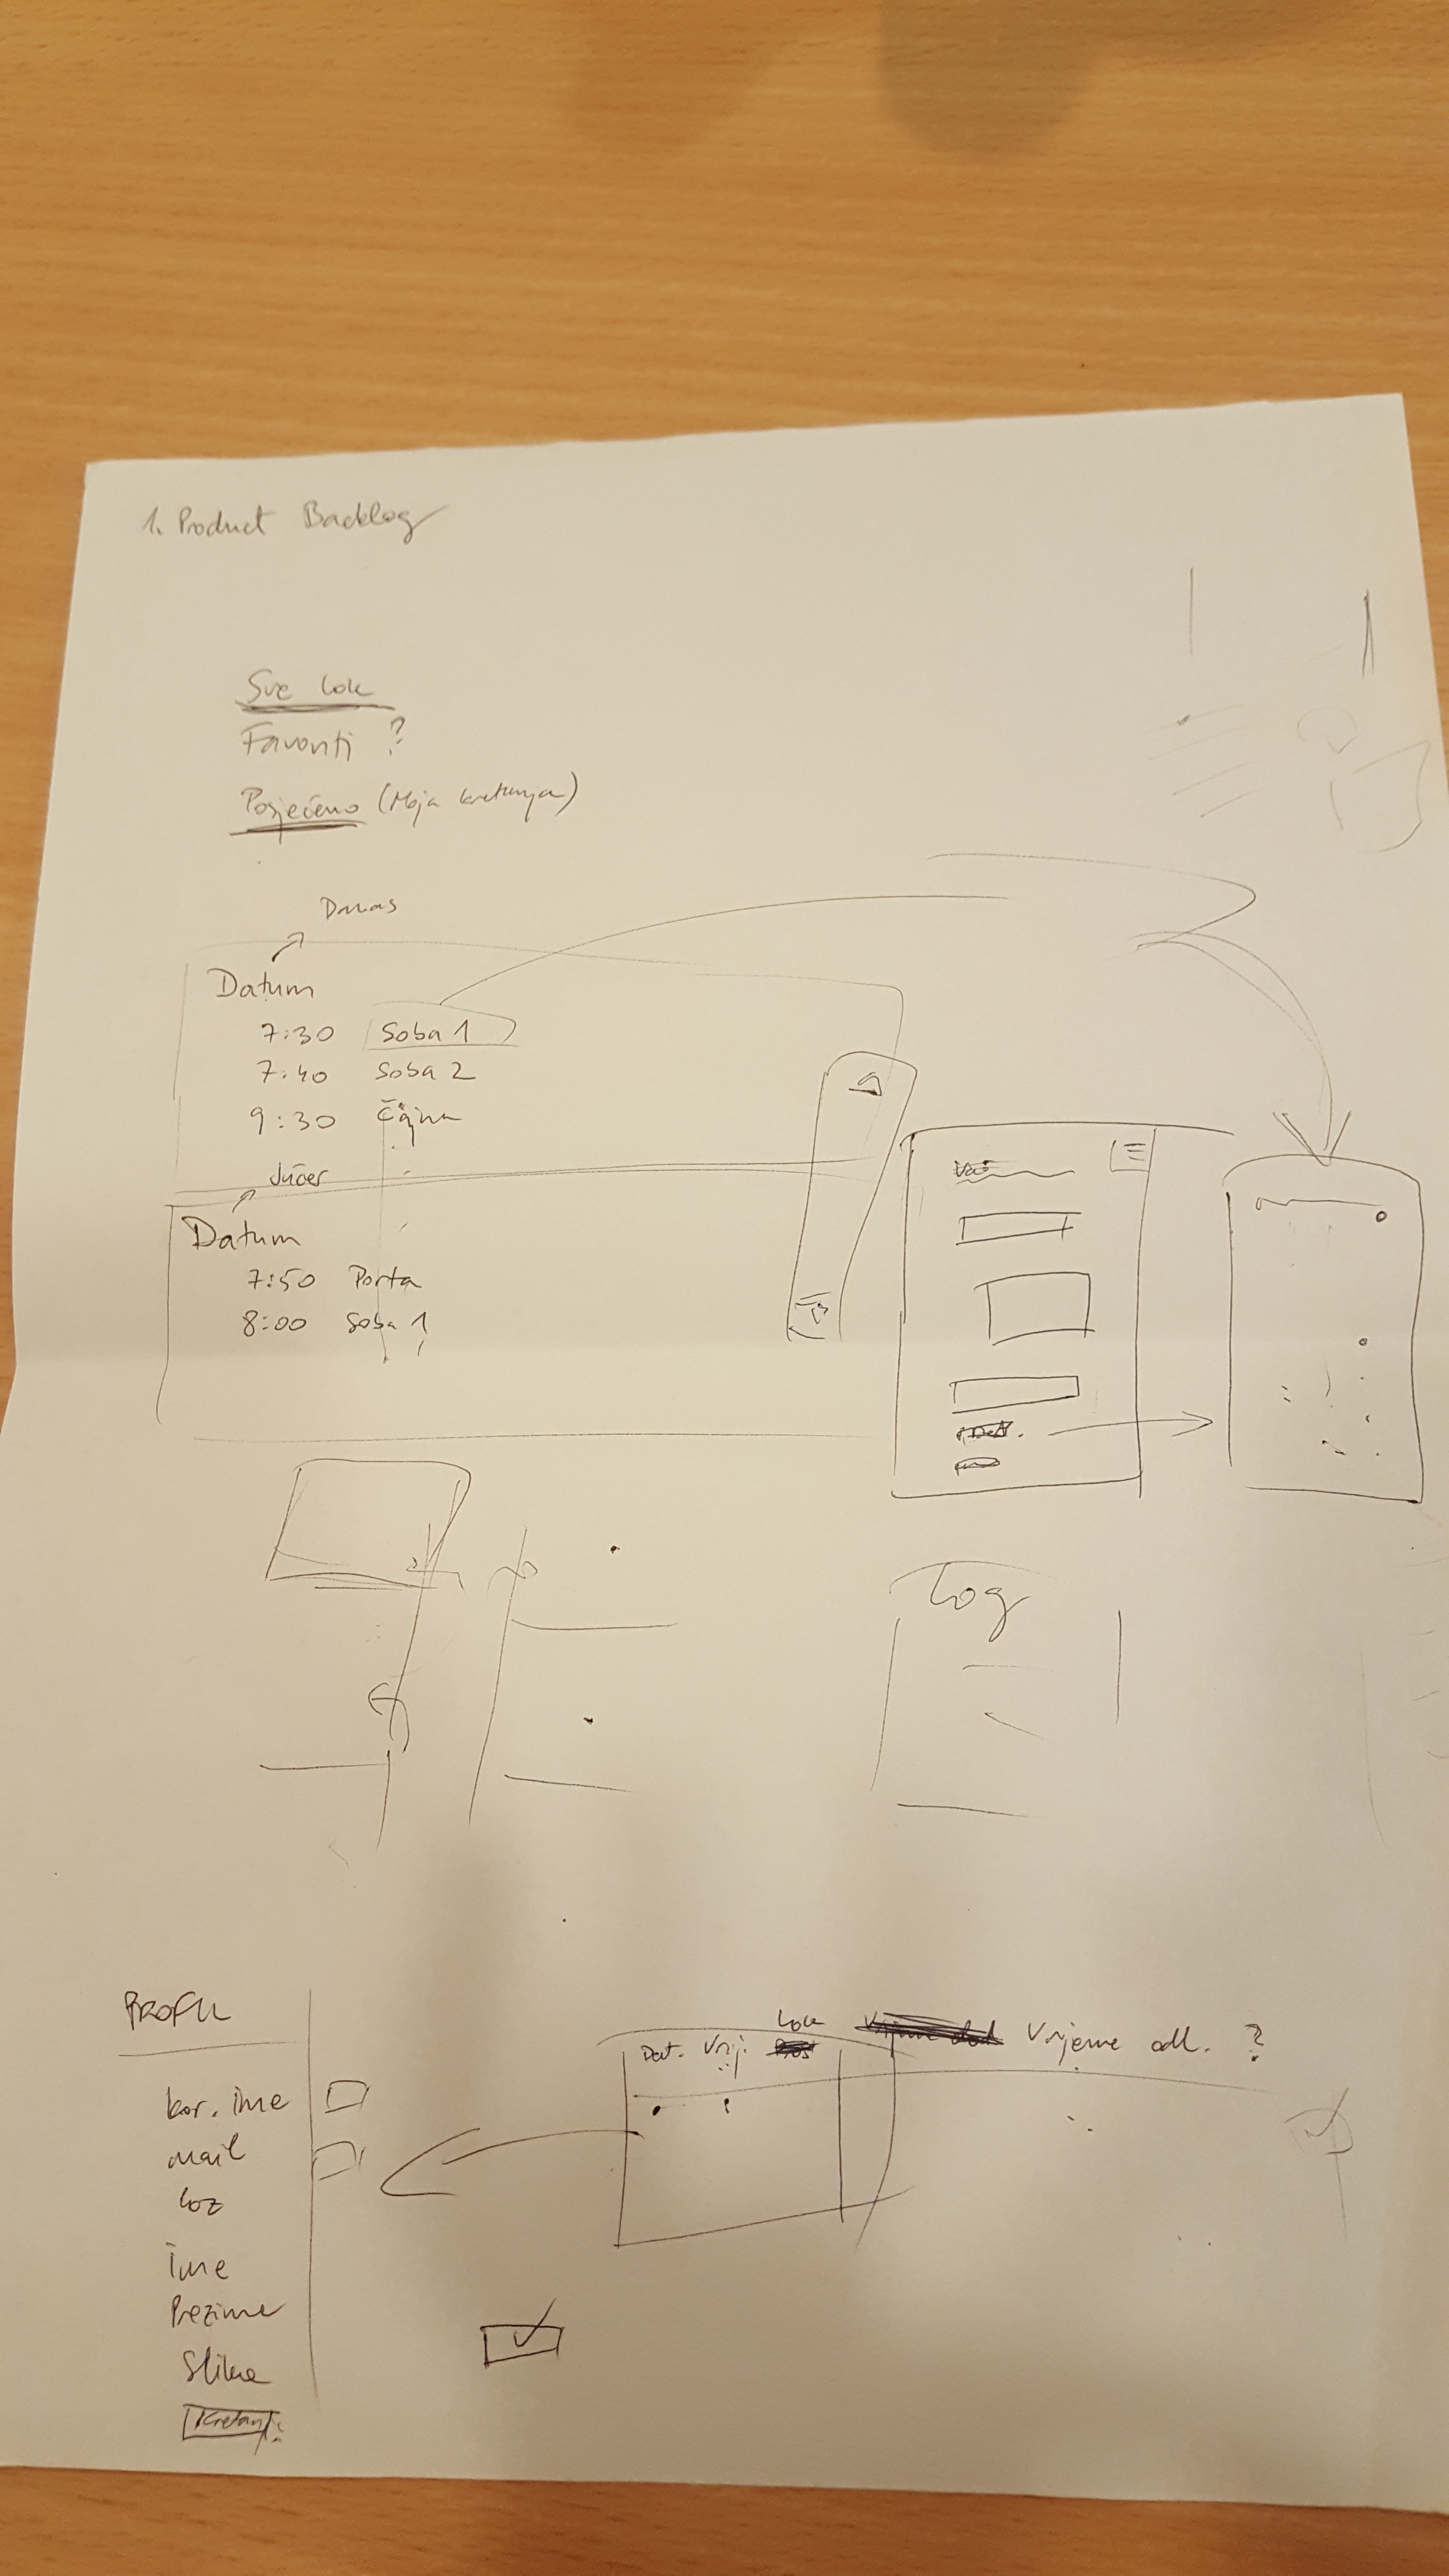 1. Product Backlog
Sve lok
Favoriti ?
Posjećeno (Moja kretanja)
Danas
Datum
7:30 Soba 1
7:40 Soba 2
9:30 Čajna
Jučer
Datum
7:50 Porta
8:00 Soba 1
Log
PROFIL
kor. ime
mail
loz
ime
Prezime
Slika
Kretanj
Lok
Dat. Vrij. Vrijeme odl. ?